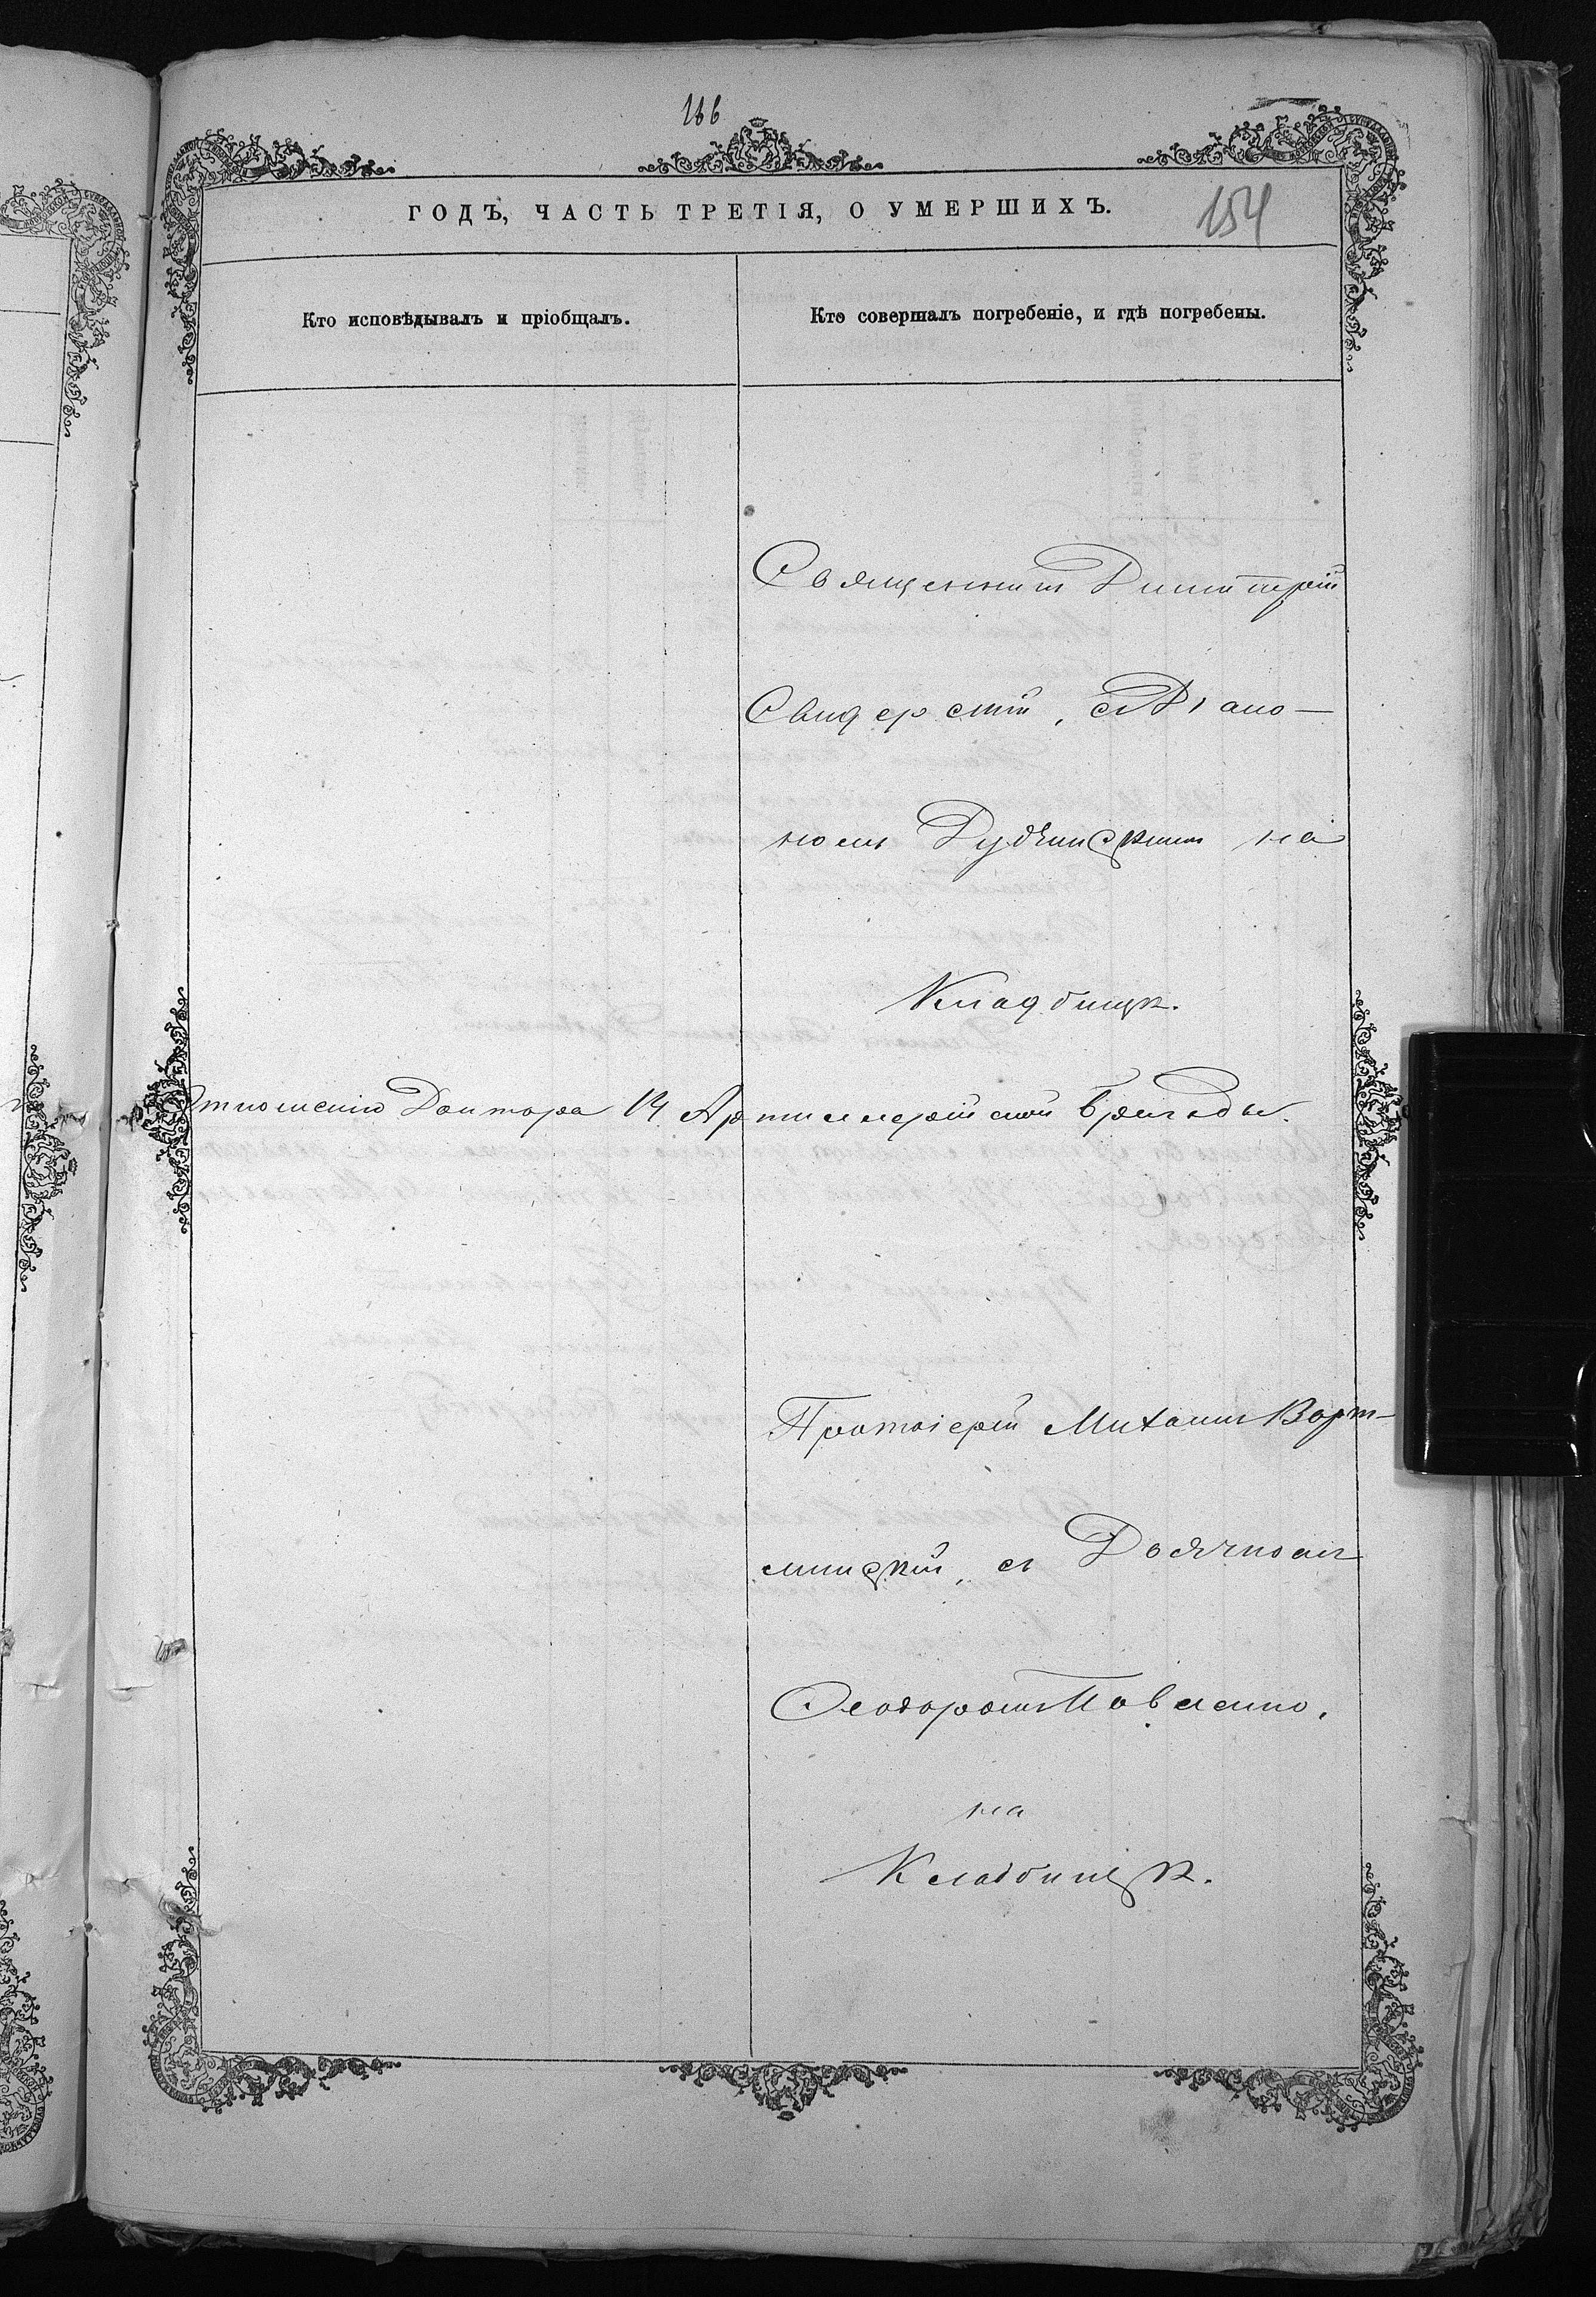 166
154
ГОДЪ, ЧАСТЬ ТРЕТІЯ, О УМЕРШИХЪ.
Кто исповѣдывалъ и пріобщалъ.
Кто совершалъ погребеніе, и гдѣ погребены.
Священникъ Димитрій
Свидерскій, съ Діако-
номъ Рудчицкимъ на
Кладбищѣ.
Отношенію Доктора 14 Артиллерійской бригады.
Протоіерей Михаилъ Борт-
мицкій, съ Дьячкомъ
Ѳеодоромъ Павленко,
на
Кладбищѣ.